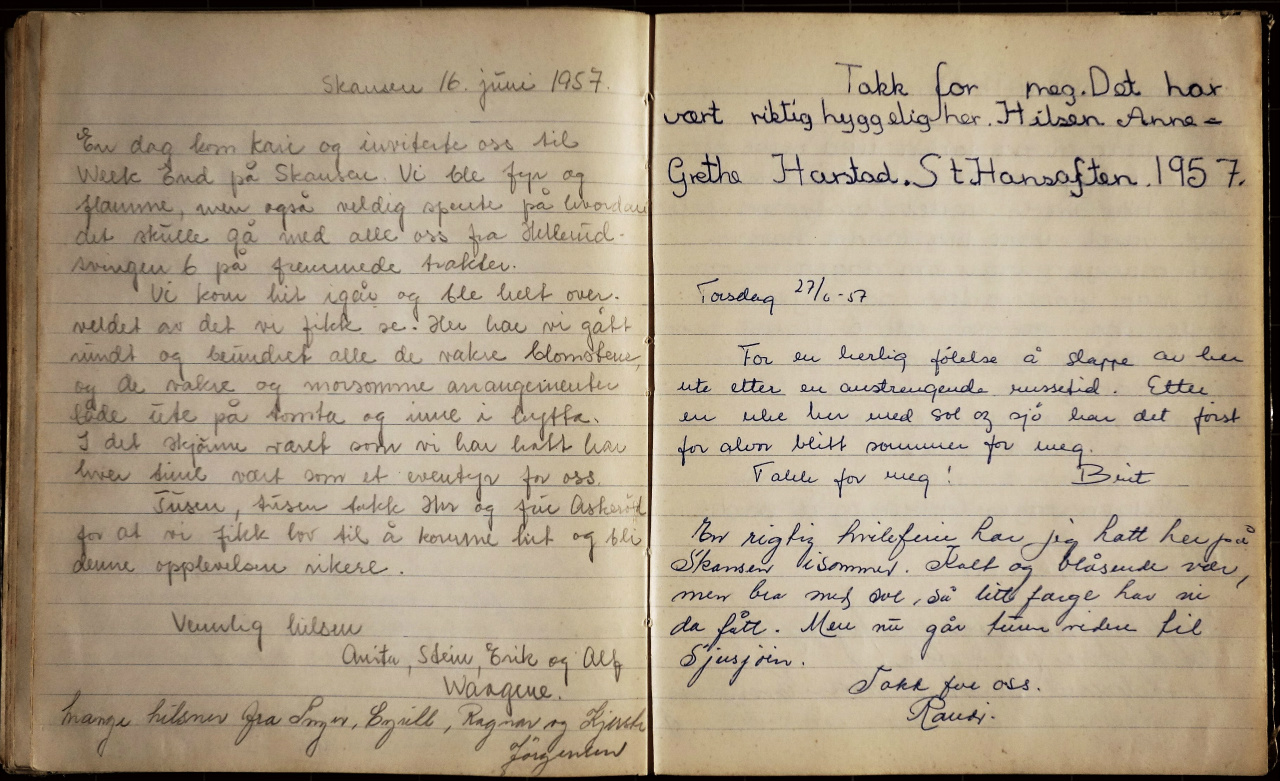 Skansen 16. juni 1957.
En dag kom Kari og inviterte oss til
Week End på Skansen. Vi ble fyr og
flamme, men også veldig spente på hvordan
det skulle gå med alle oss fra Hellerud-
svingen 6 på fremmede trakter.
Vi kom hit igår og ble helt over-
veldet av det vi fikk se. Her har vi gått
rundt og beundret alle de vakre blomstene,
og de vakre og morsomme arrangementer
både ute på tomta og inne i hytta.
I det skjønne været som vi har hatt har
hver time vært som et eventyr for oss.
Tusen, tusen takk Hr og fru Askerød
for at vi fikk lov til å komme hit og bli
denne opplevelsen rikere.
Vennlig hilsen
Anita, Stein, Erik og Alf
Wangene.
Mange hilsner fra Inger, Ragnar og
Jörgensen
Takk for meg. Det har
vært riktig hyggelig her. Hilsen Anne-
Grethe Harstad. St.Hansaften. 1957.
Torsdag 27/6-57
For en herlig følelse å slappe av her
ute etter en anstrengende russetid. Etter
en uke her med sol og sjø har det først
for alvor blitt sommer for meg.
Takk for meg! Brit
En rigtig hvileferie har jeg hatt her på
Skansen isommer. Kalt og blåsende vær,
men bra med sol, så litt farge har vi
da fått. Men nu går turen videre til
Sjusjøen.
Takk for oss.
Randi.